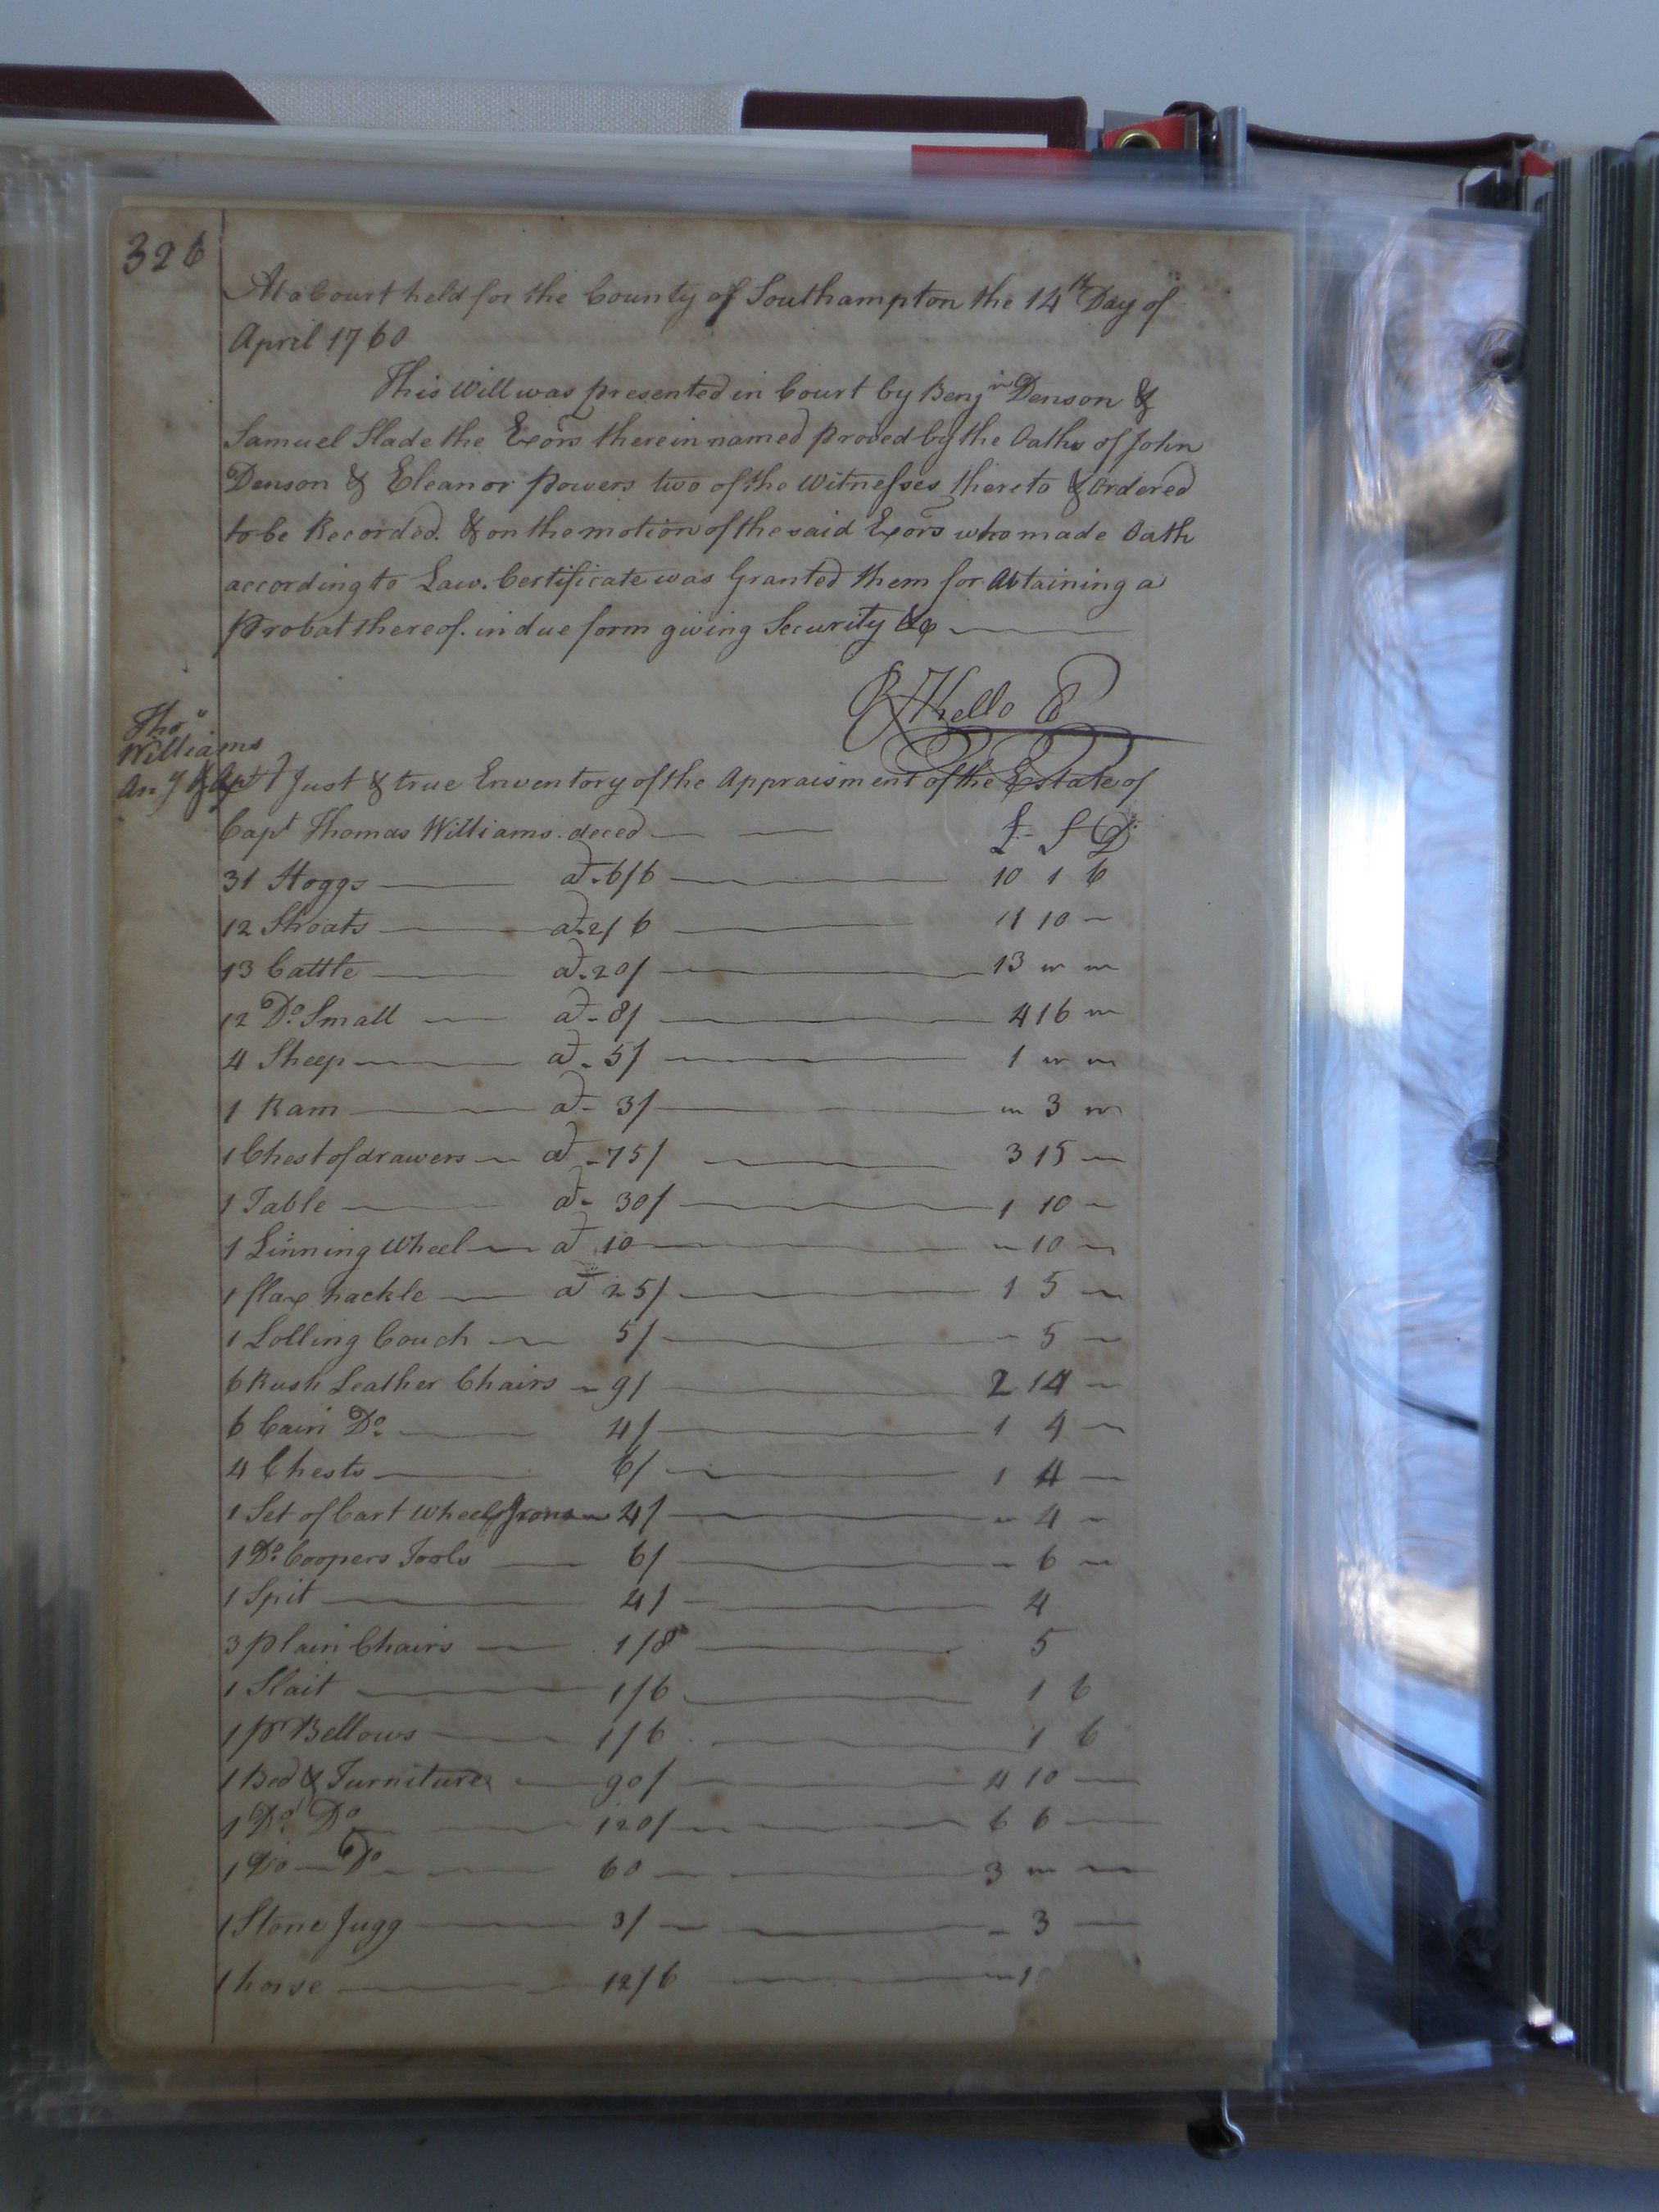 326
At a Court held for the County of Southampton the 14th Day of
April 1760
This Will was presented in Court by Benjn Denson &
Samuel Slade the Exors therein named proved by the Oaths of John
Denson & Eleanor Powers two of the Witnesses thereto & Ordered
to be Recorded. & on the motion of the said Exors who made Oath
according to Law. Certificate was Granted them for Obtaining a
Probat thereof. in due form giving Security &c
Thos
Williams
A Just & true Enventory of the Appraisment of the Estate of
Capt Thomas Williams deced £ S D
31 Hoggs at 6/6 10 1 6
12 Shoats at 2/6 11 10
13 Cattle at 20/ 13
12 Do Small at 8/ 4 16
4 Sheep at 5/ 1
1 Ram at 3/ 3
1 Chest of drawers at 75/ 3 15
1 Table at 30/ 1 10
1 Linning Wheel at 10 10
1 flax hackle at 25/ 1 5
1 Lolling Couch 5/ 5
6 Rush Leather Chairs 9/ 2 14
6 Cain Do 4/ 1 4
4 Chests 6/ 1 4
1 Set of Cart Wheel Irons 4/ 4
1 Do Coopers Tools 6/ 6
1 Spit 4/ 4
3 plain Chairs 1/8 5
1 Slait 1/6 1 6
1 pr Bellows 1/6 1 6
1 Bed & Furniture 90/ 4 10
1 Do Do 120/ 6 6
1 Do Do 60 3
1 Stone Jugg 3/ 3
1 horse 12/6